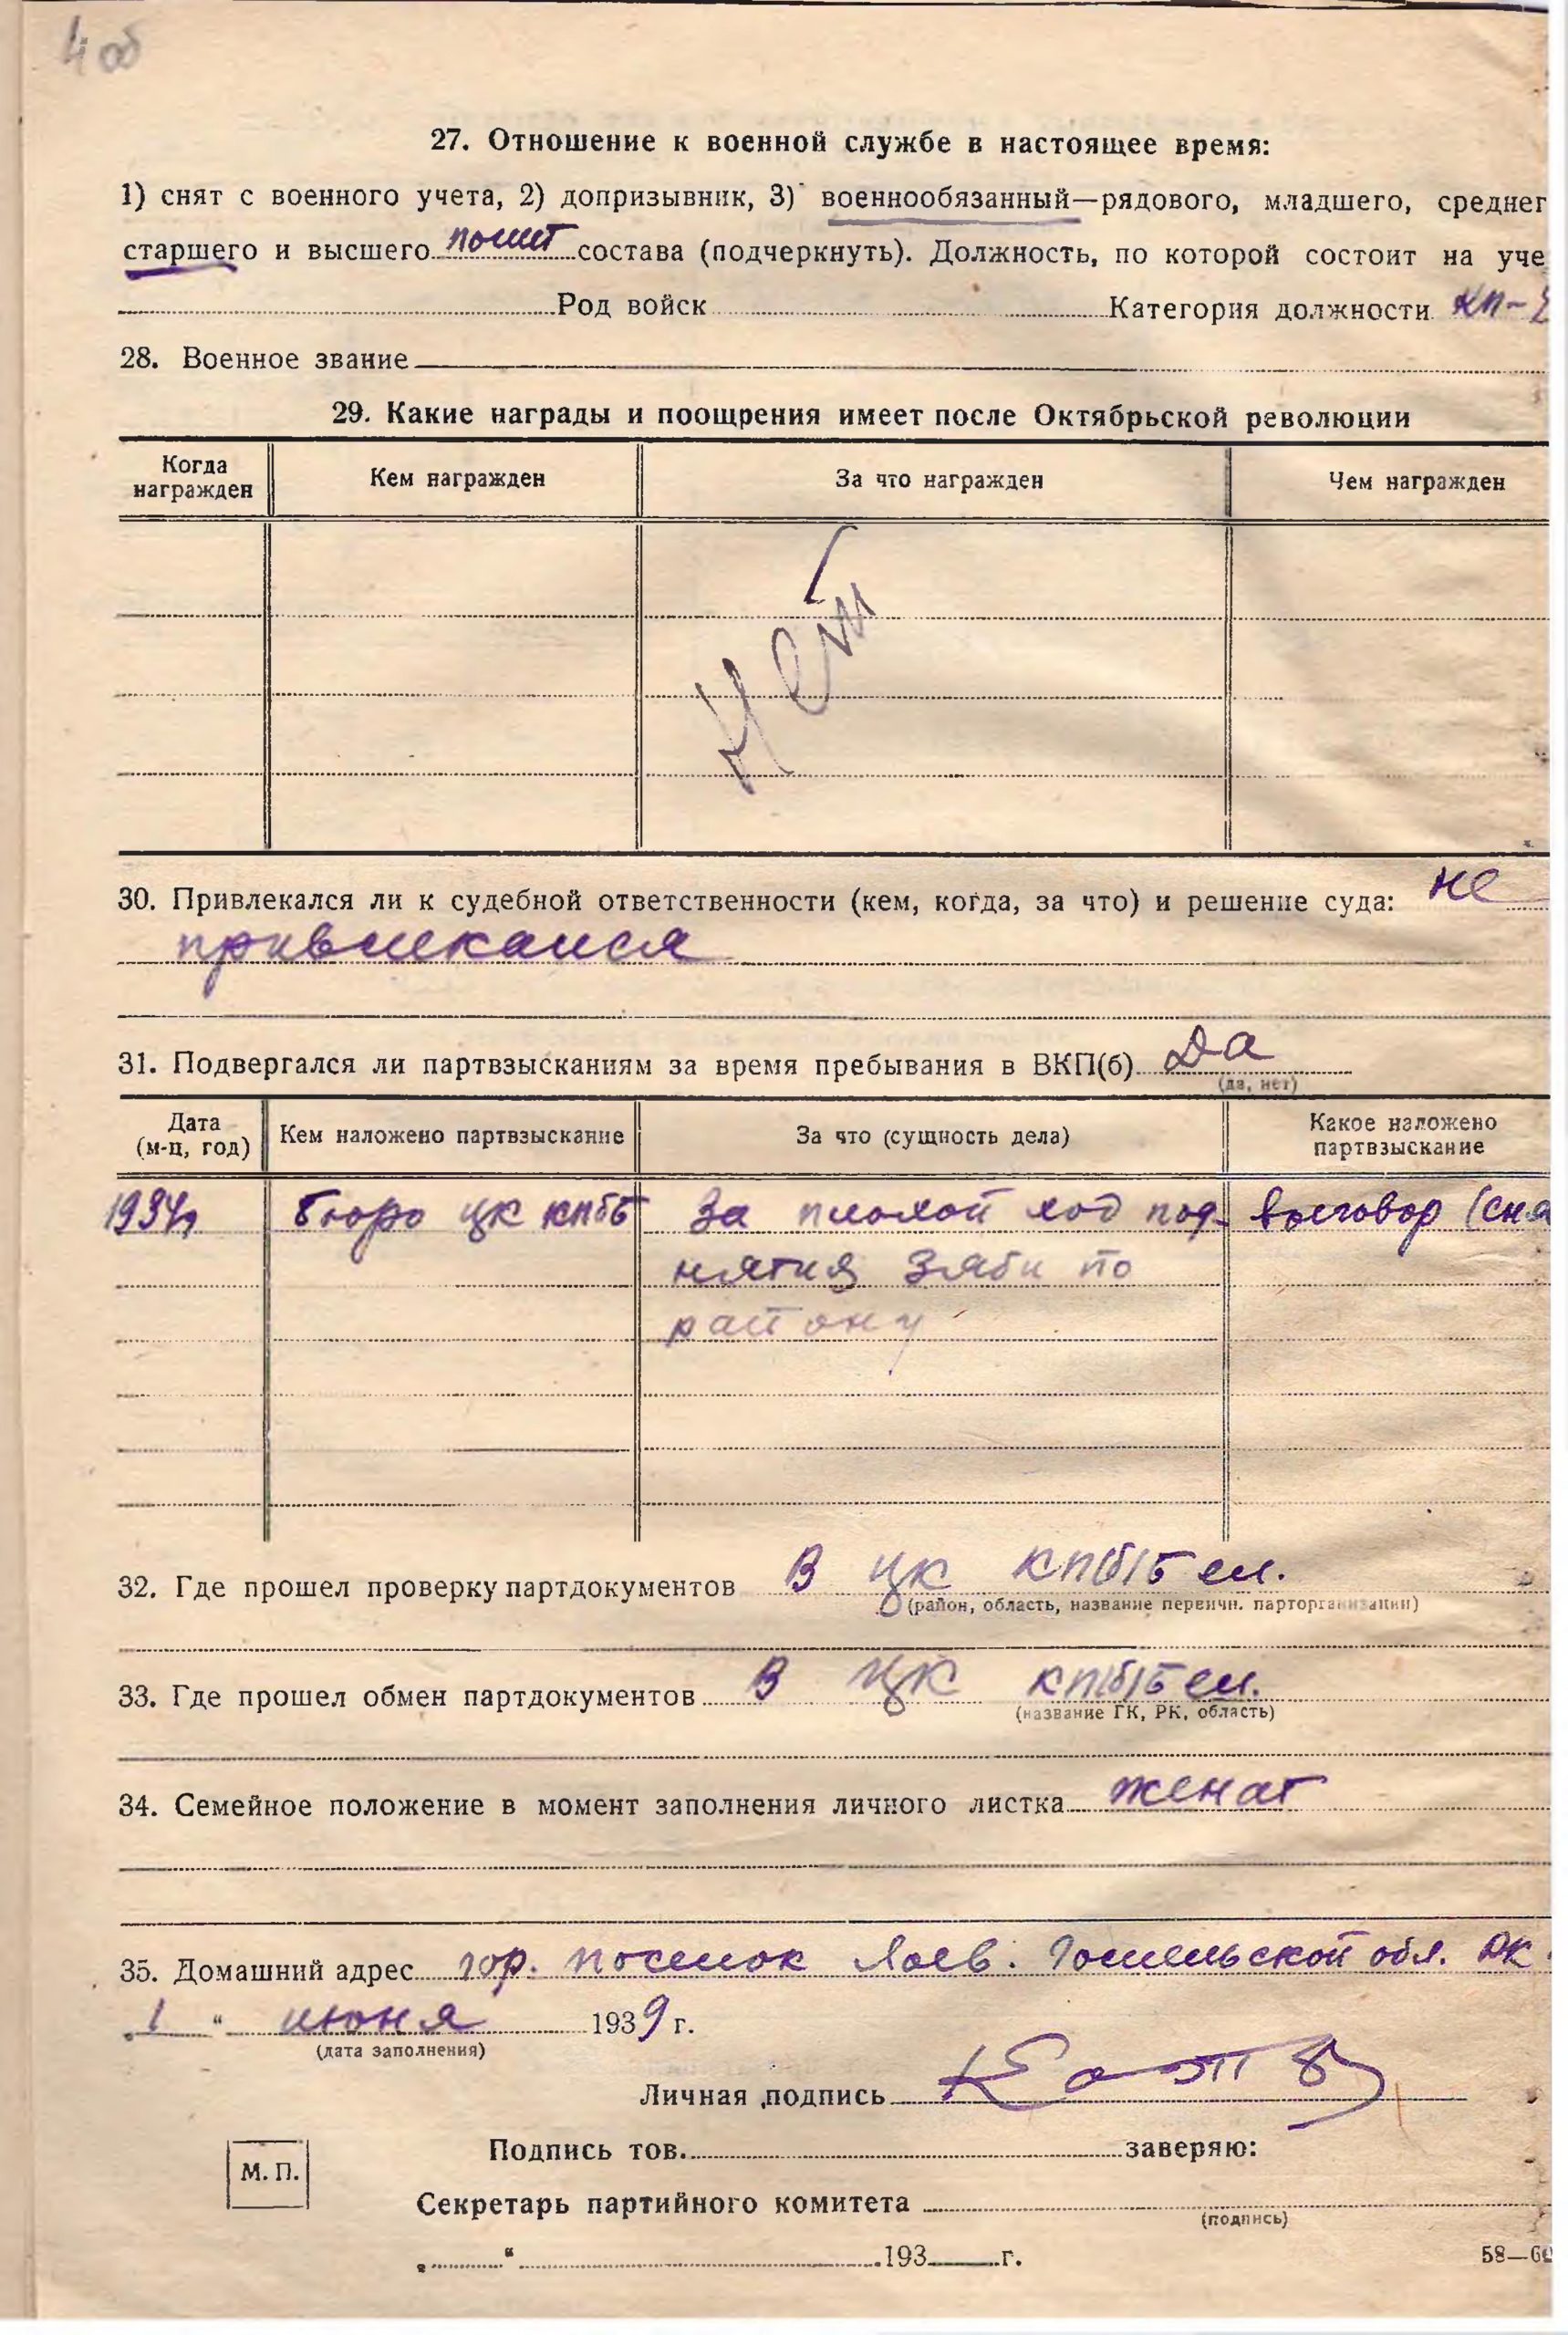 4 об
27. Отношение к военной службе в настоящее время:
1) снят с военного учета, 2) допризывник, 3) военнообязанный—рядового, младшего, среднег
старшего и высшего полит состава (подчеркнуть). Должность, по которой состоит на уче
Род войск Категория должности КП-
28. Военное звание
29. Какие награды и поощрения имеет после Октябрьской революции
Когда награжден Кем награжден За что награжден Чем награжден
Нет
30. Привлекался ли к судебной ответственности (кем, когда, за что) и решение суда: не
привлекался
31. Подвергался ли партвзысканиям за время пребывания в ВКП(б) Да
(да, нет)
Дата (м-ц, год) Кем наложено партвзыскание За что (сущность дела) Какое наложено партвзыскание
1934г Бюро ЦК КПбБ За плохой ход под- выговор (сня
нятия зяби по
району
32. Где прошел проверку партдокументов В ЦК КП(б)Бел.
(район, область, название первичн. парторганизации)
33. Где прошел обмен партдокументов В ЦК КП(б)Бел.
(название ГК, РК, область)
34. Семейное положение в момент заполнения личного листка женат
35. Домашний адрес гор. поселок Лоев. Гомельской обл. РК
„1“ июня 1939 г.
(дата заполнения)
Личная подпись
Подпись тов. заверяю:
М. П.
Секретарь партийного комитета
(подпись)
„ “ 193 г.
58—60